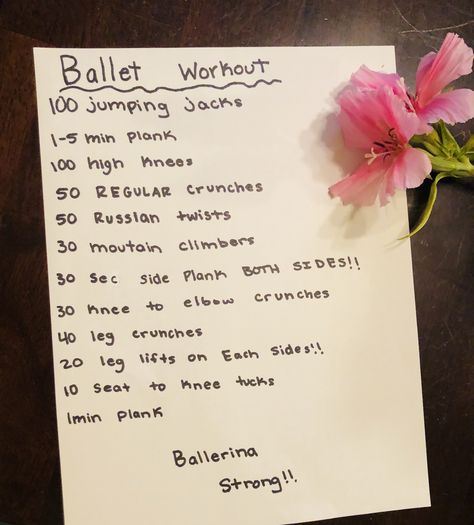 Ballet Workout
100 jumping jacks
1-5 min plank
100 high knees
50 REGULAR crunches
50 Russian twists
30 moutain climbers
30 sec side Plank BOTH SIDES!!
30 knee to elbow crunches
40 leg crunches
20 leg lifts on Each sides!!
10 seat to knee tucks
1min plank
Ballerina
Strong!!